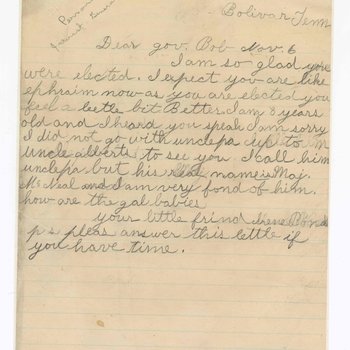 Bolivar Tenn
Dear gov. Bob Nov. 6
I am so glad you
were elected. I expect you are like
ephraim now as you are elected you
feel a little bit Better. I am 8 years
old and I heard you speak I am sorry
I did not go with unclepa up to Mr
uncle alberts to see you I call him
unclepa but his real name is Maj.
McNeal and I am very fond of him.
how are the gal babies
your little frind Irene Bond
p s pleas answer this lettle if
you have time.